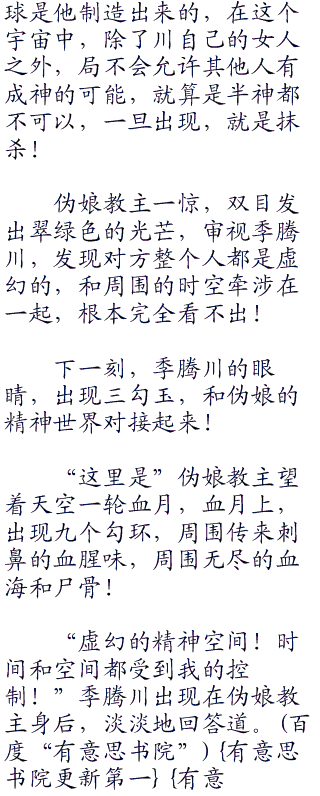 球是他制造出来的，在这个
宇宙中，除了川自己的女人
之外，局不会允许其他人有
成神的可能，就算是半神都
不可以，一旦出现，就是抹
杀！
伪娘教主一惊，双目发
出翠绿色的光芒，审视季腾
川，发现对方整个人都是虚
幻的，和周围的时空牵涉在
一起，根本完全看不出！
下一刻，季腾川的眼
睛，出现三勾玉，和伪娘的
精神世界对接起来！
“这里是”伪娘教主望
着天空一轮血月，血月上，
出现九个勾环，周围传来刺
鼻的血腥味，周围无尽的血
海和尸骨！
“虚幻的精神空间！时
间和空间都受到我的控
制！”季腾川出现在伪娘教
主身后，淡淡地回答道。(百
度“有意思书院”) {有意思
书院更新第一} {有意